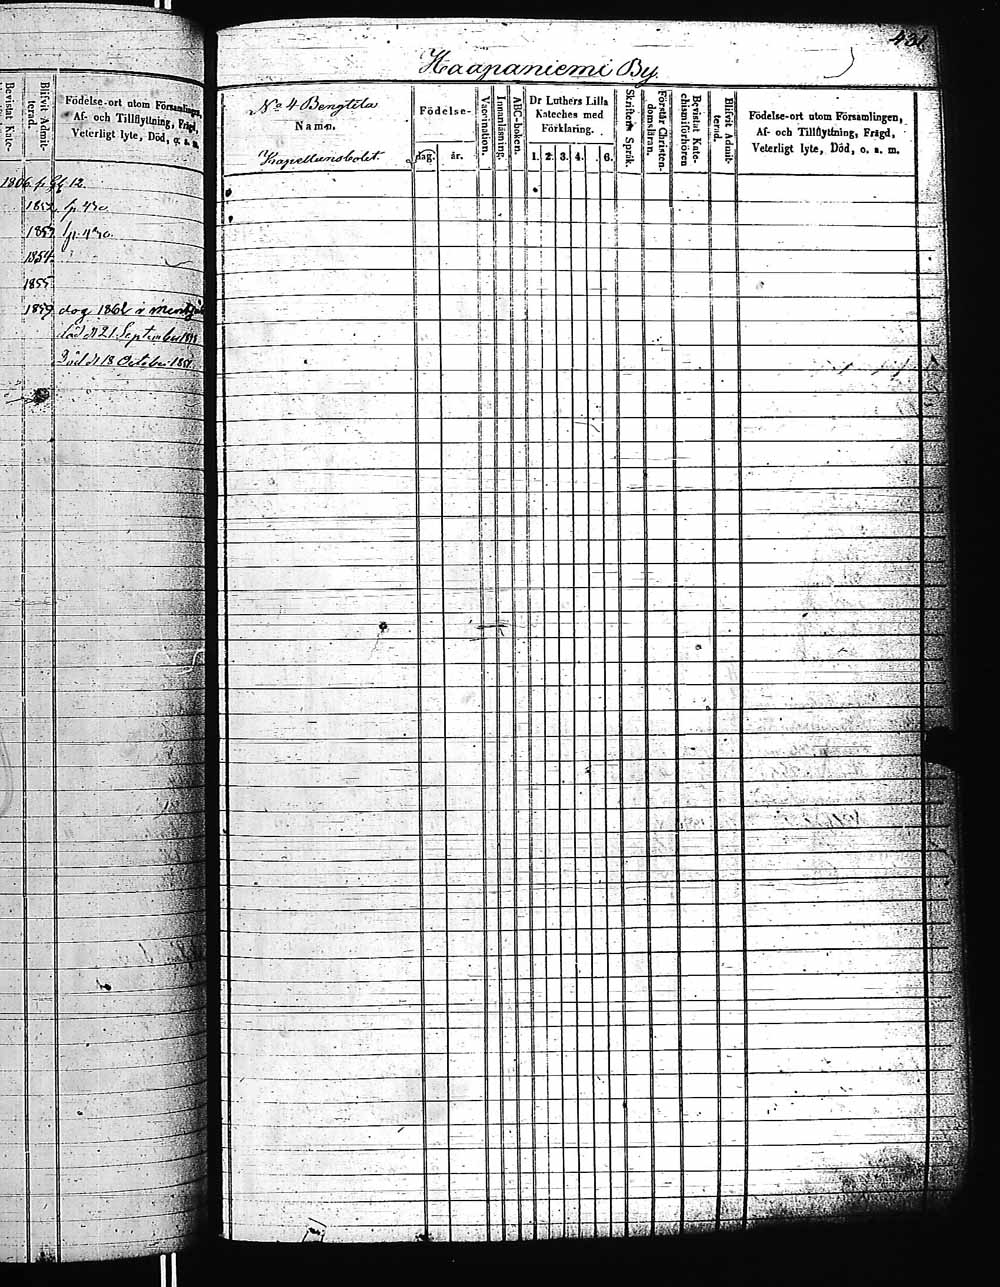 Bevistat Kate-
Blifvit Admit-
terad.
Födelse-ort utom Församlingen,
Af- och Tillflyttning, Frägd,
Veterligt lyte, Död, o. s. m.
1806. 12.
1852. p. 430
1852 p. 430.
1854.
1855
1859 dog 1862
död d. 21. September
död d. 18 October 1857.
431
Haapaniemi By.
No 4 Bengtila
Namn.
Kapellansbolet.
Födelse-
dag.
år.
Vaccination.
Innanläsning.
ABC-boken.
Dr Luthers Lilla
Kateches med
Förklaring.
1. 2. 3. 4. . 6.
Skriftens Språk.
Förstår Christen-
domsläran.
Bevistat Kate-
chismiförhören
Blifvit Admit-
terad.
Födelse-ort utom Församlingen,
Af- och Tillflyttning, Frägd,
Veterligt lyte, Död, o. s. m.